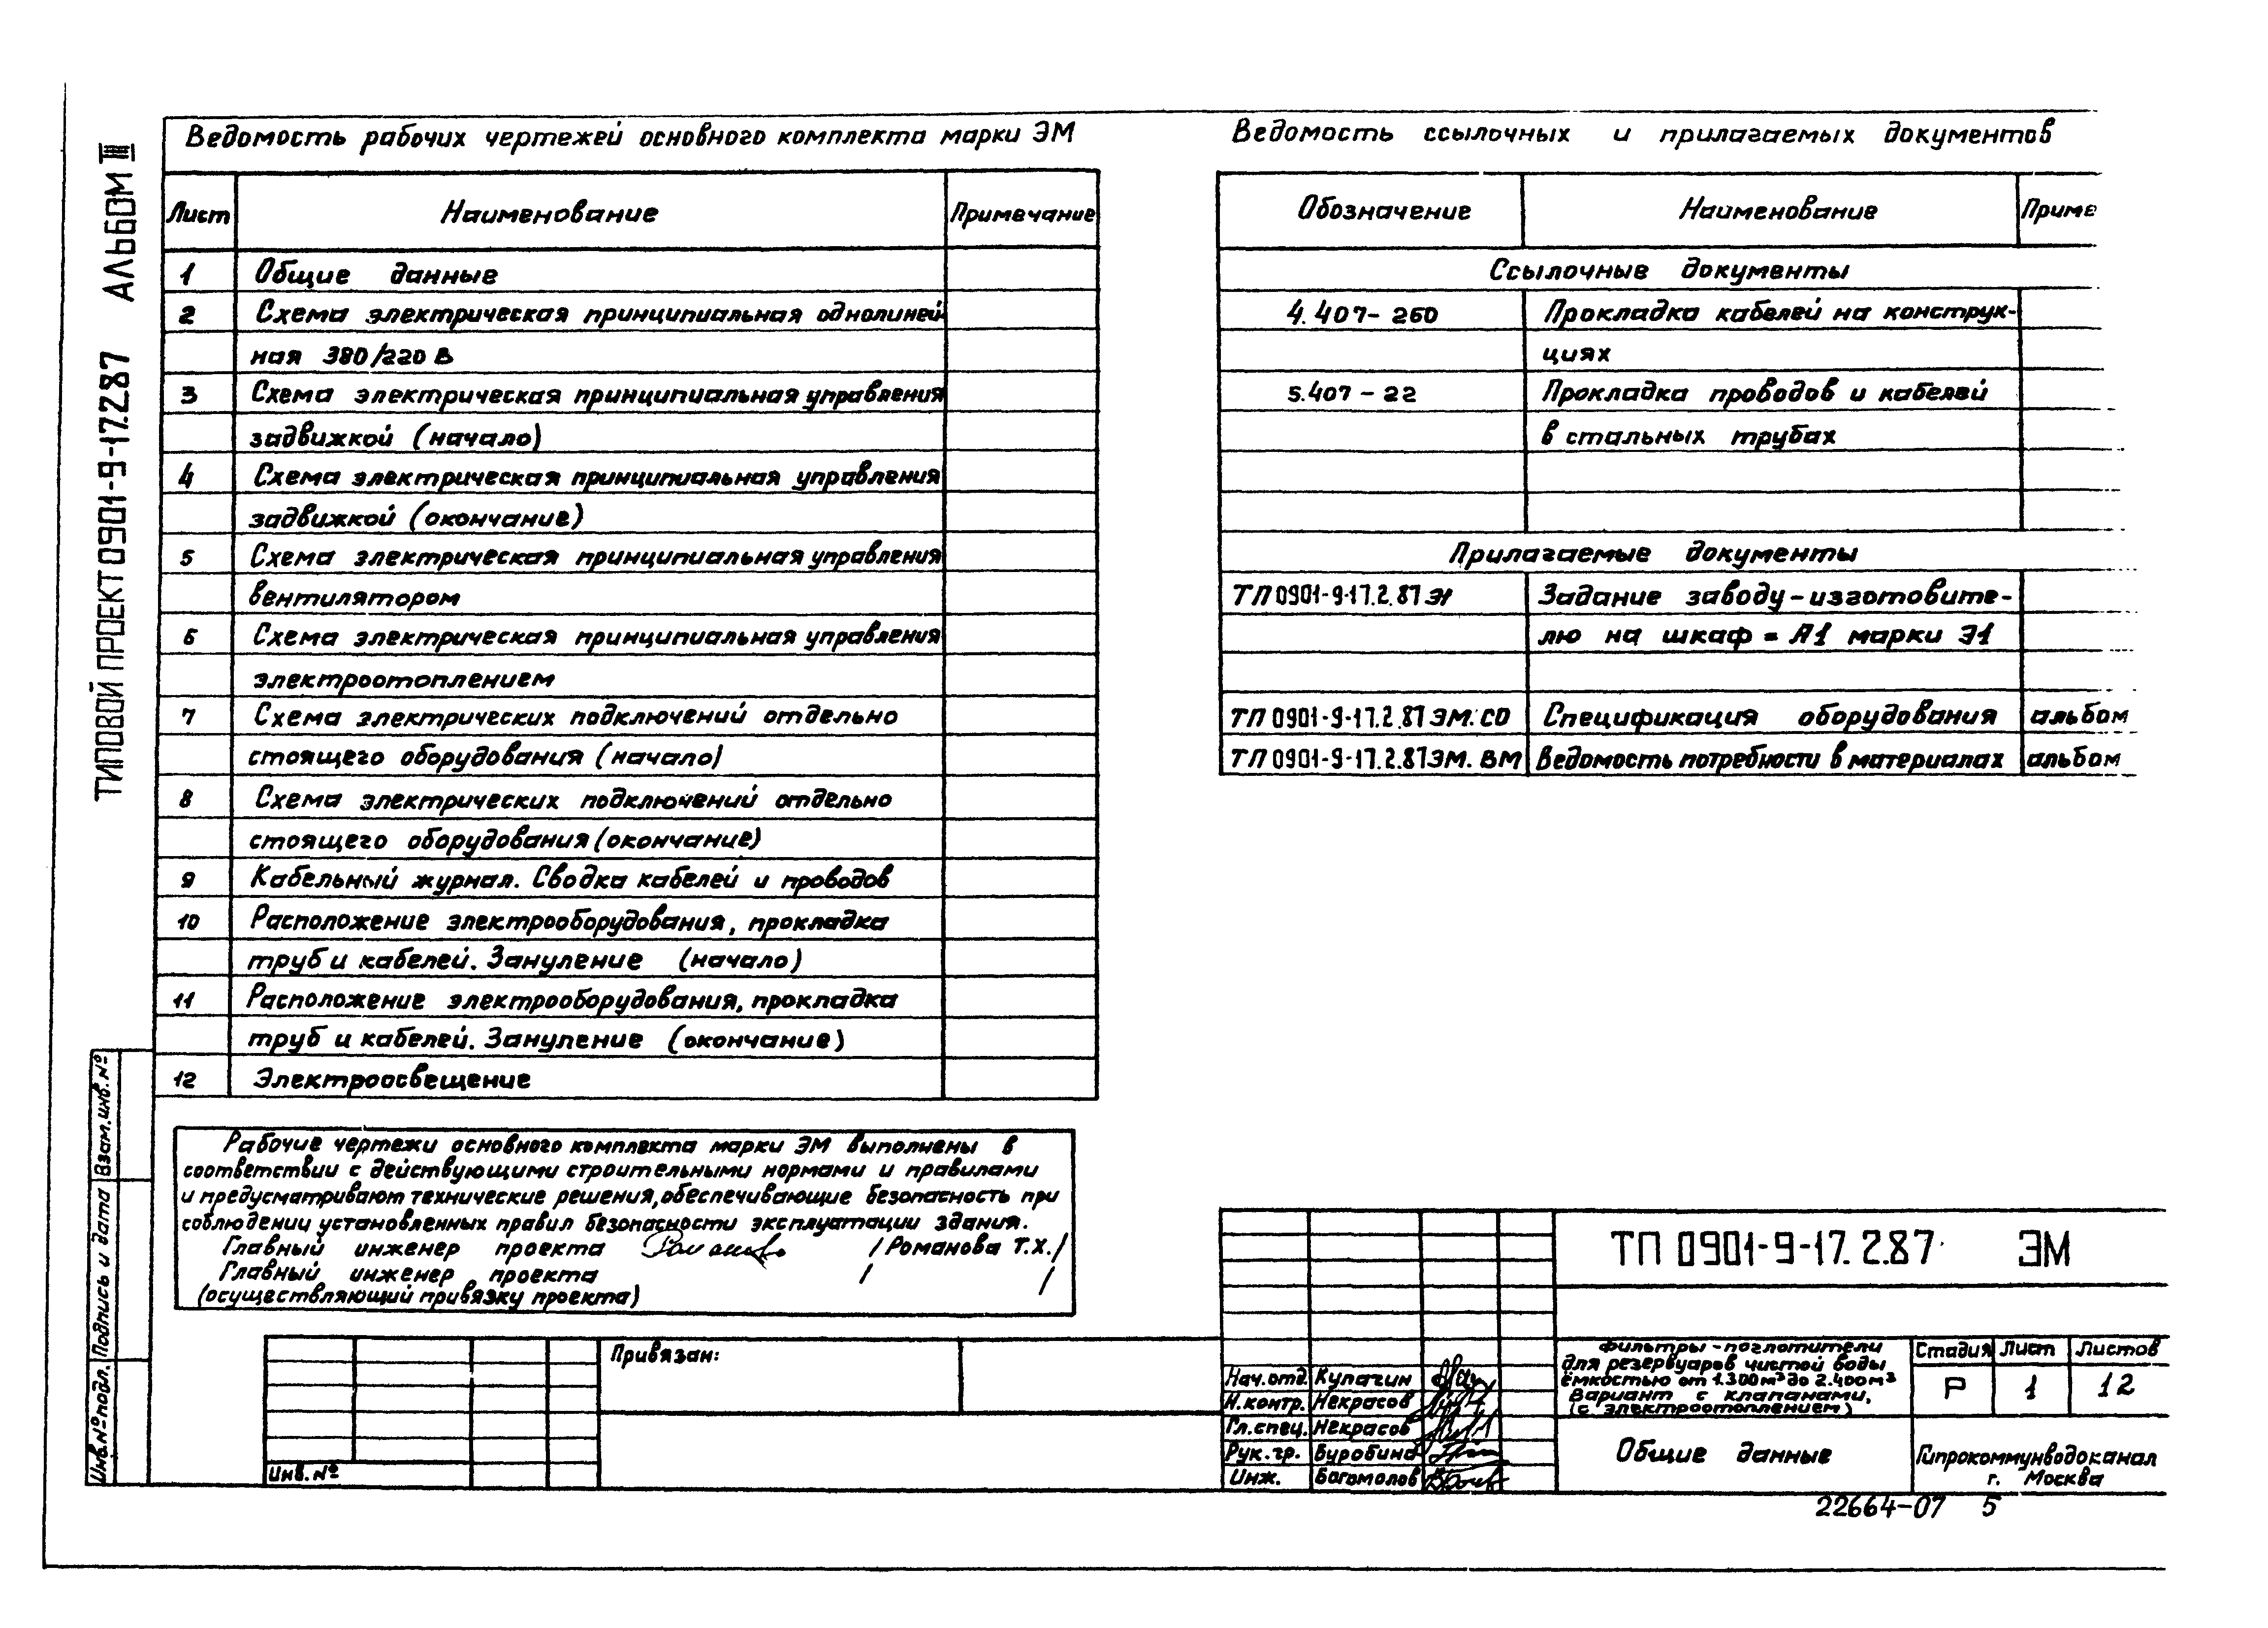 ТИПОВОЙ ПРОЕКТ 0901-9-17.2.87 АЛЬБОМ III
Ведомость рабочих чертежей основного комплекта марки ЭМ
Лист Наименование Примечание
1 Общие данные
2 Схема электрическая принципиальная однолиней-
ная 380/220 В
3 Схема электрическая принципиальная управления
задвижкой (начало)
4 Схема электрическая принципиальная управления
задвижкой (окончание)
5 Схема электрическая принципиальная управления
вентилятором
6 Схема электрическая принципиальная управления
электроотоплением
7 Схема электрических подключений отдельно
стоящего оборудования (начало)
8 Схема электрических подключений отдельно
стоящего оборудования (окончание)
9 Кабельный журнал. Сводка кабелей и проводов
10 Расположение электрооборудования, прокладка
труб и кабелей. Зануление (начало)
11 Расположение электрооборудования, прокладка
труб и кабелей. Зануление (окончание)
12 Электроосвещение
Ведомость ссылочных и прилагаемых документов
Обозначение Наименование Приме
Ссылочные документы
4.407-260 Прокладка кабелей на конструк-
циях
5.407-22 Прокладка проводов и кабелей
в стальных трубах
Прилагаемые документы
ТП 0901-9-17.2.87 ЭИ Задание заводу-изготовите-
лю на шкаф = Я1 марки Э1
ТП 0901-9-17.2.87 ЭМ.СО Спецификация оборудования альбом
ТП 0901-9-17.2.87 ЭМ.ВМ Ведомость потребности в материалах альбом
Рабочие чертежи основного комплекта марки ЭМ выполнены в
соответствии с действующими строительными нормами и правилами
и предусматривают технические решения, обеспечивающие безопасность при
соблюдении установленных правил безопасности эксплуатации здания.
Главный инженер проекта /Романова Т.Х./
Главный инженер проекта / /
(осуществляющий привязку проекта)
Взам.инв.№
Подпись и дата
Инв.№ подл.
Привязан:
Инв.№
ТП 0901-9-17.2.87 ЭМ
Нач.отд. Кулагин
Н.контр. Некрасов
Гл.спец. Некрасов
Рук.гр. Буробина
Инж. Богомолов
Фильтры-поглотители
для резервуаров чистой воды
ёмкостью от 1.300 м³ до 2.400 м³
Вариант с клапанами,
(с электроотоплением)
Стадия Лист Листов
Р 1 12
Общие данные
Гипрокоммунводоканал
г. Москва
22664-07 5